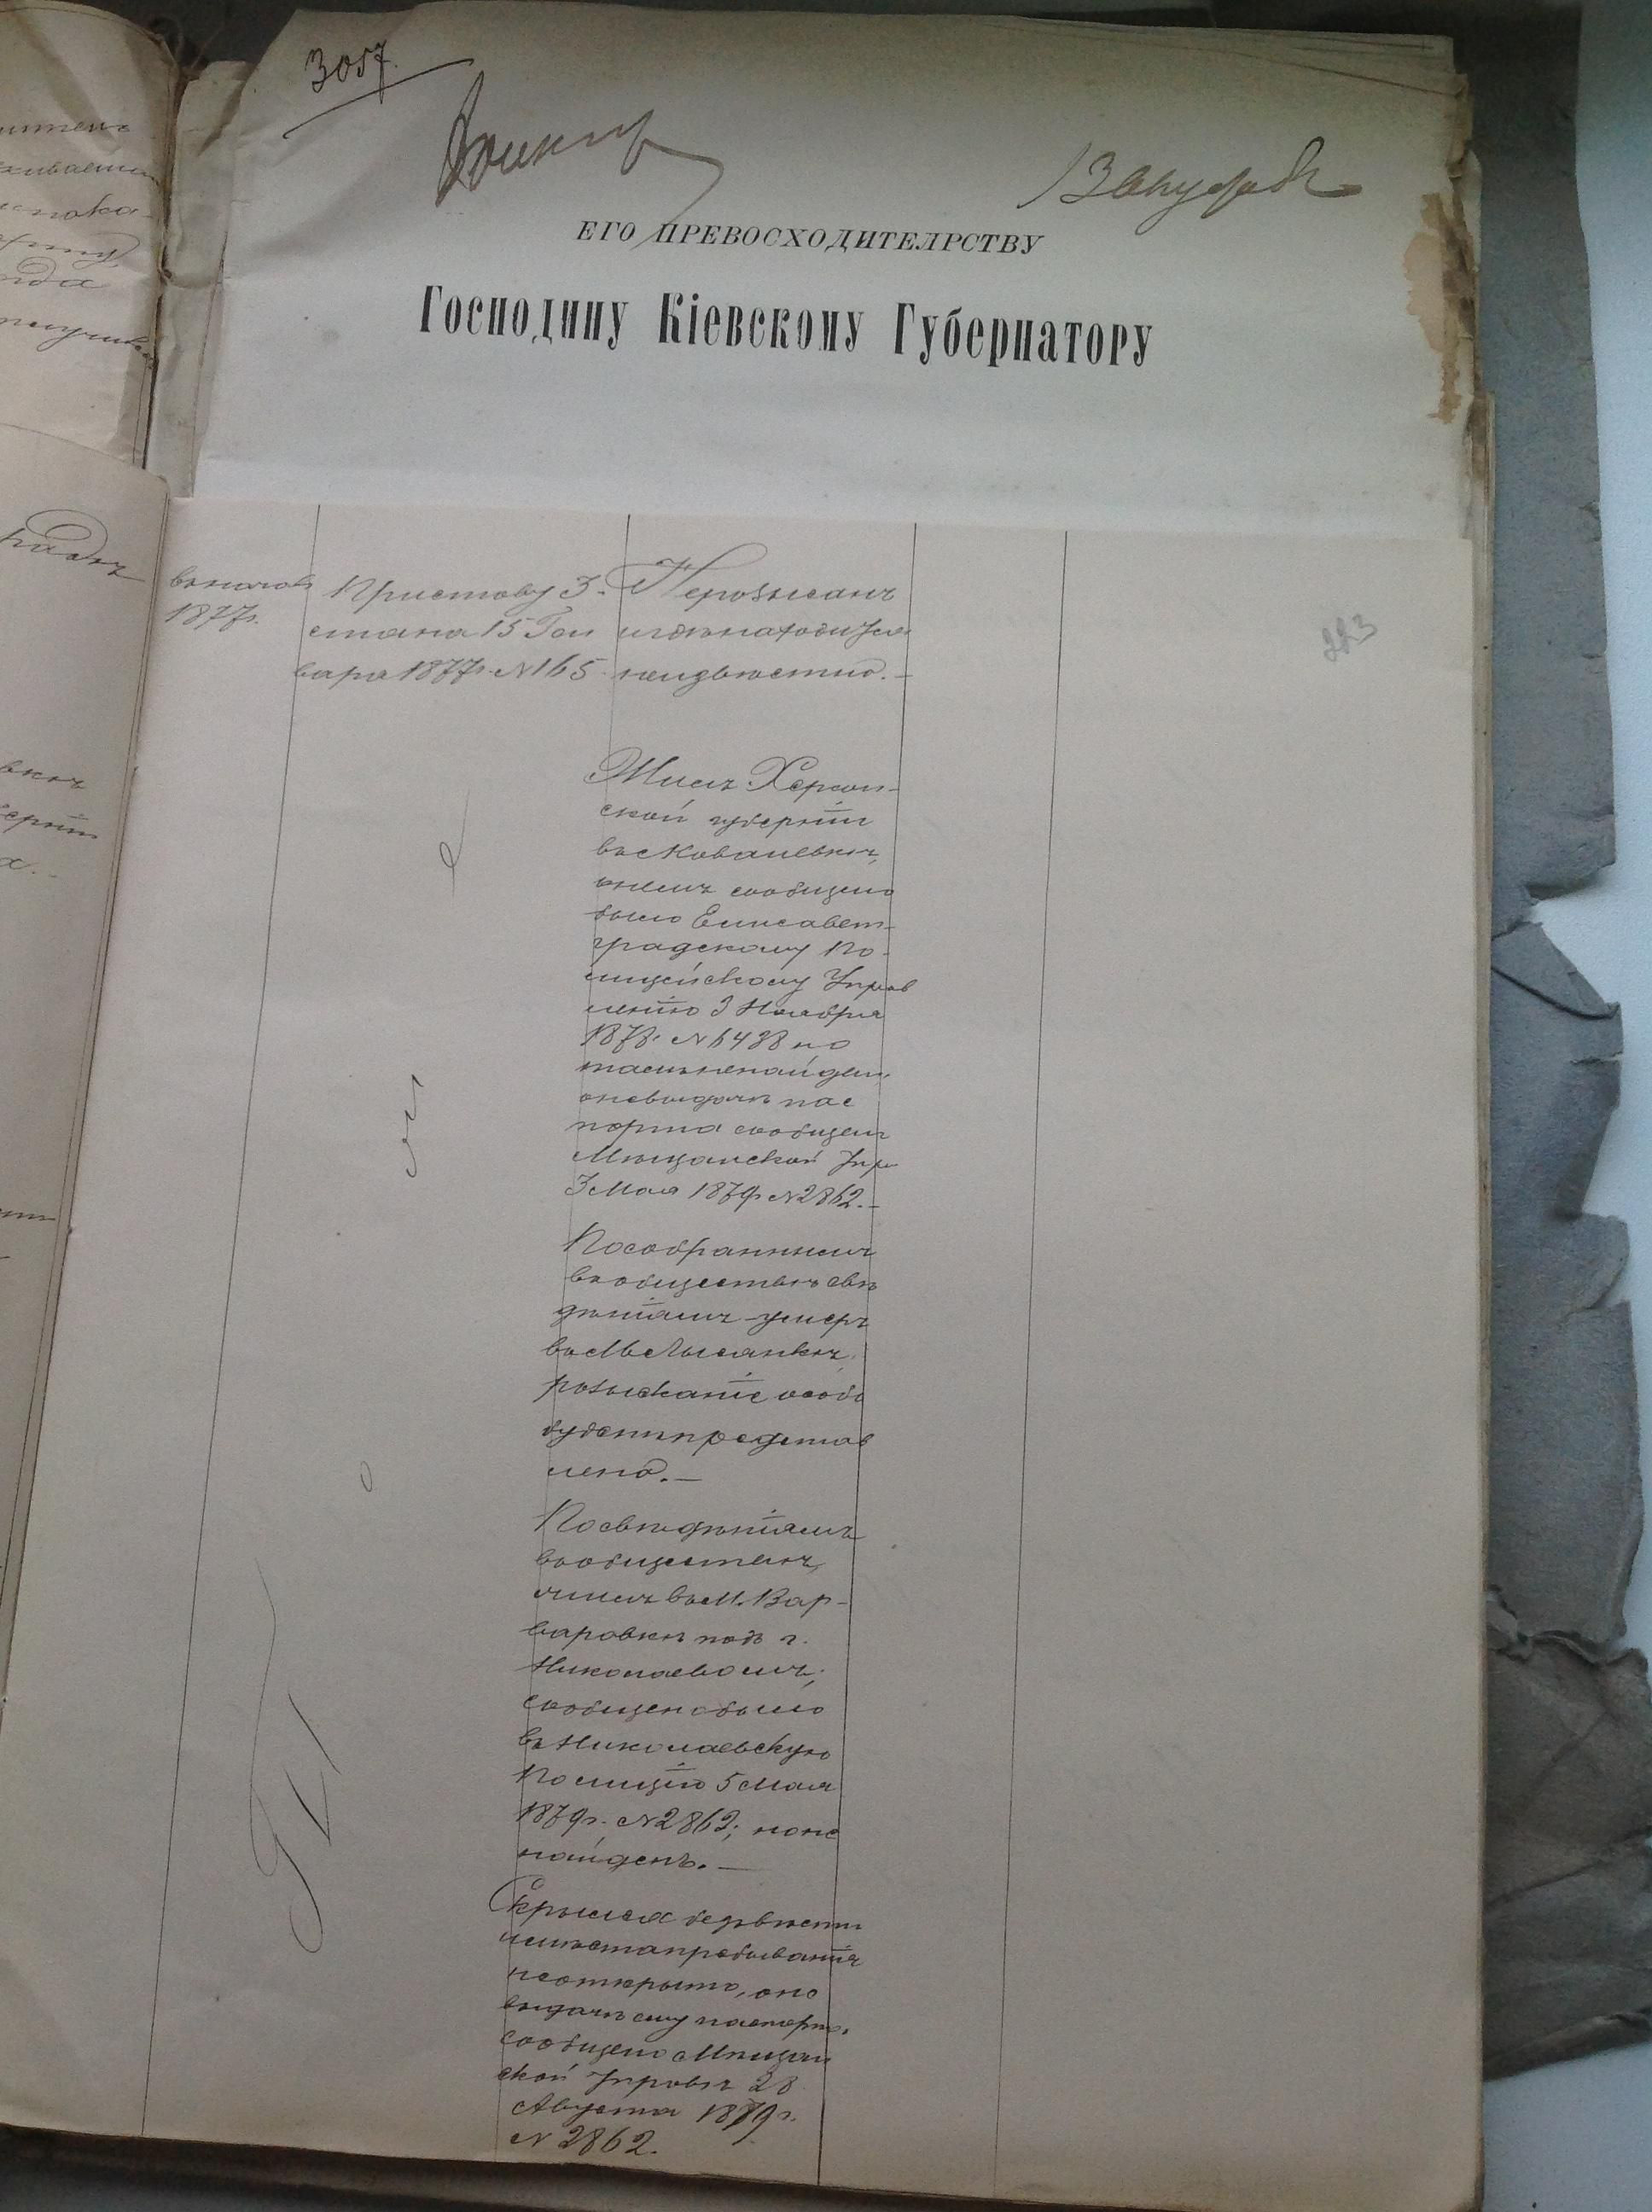 3057.
ЕГО ПРЕВОСХОДИТЕЛРСТВУ
Господину Кіевскому Губернатору
223
1877г.
Приставу 3.
стана 15 Ген
варя 1877г. №165
Нерозысанъ
игдѣ находится
неизвѣстно.–
Жилъ Херсон-
ской губерніи
въ с Ковалевкѣ,
онемъ сообщено
было Елисавет-
градскому По-
лицейскому Управ
ленію 3 Ноября
1878. №6438 но
тамъ ненайден.
оневыдачѣ пас
порта сообщен
Мѣщанской Упр
3 Мая 1879г №2862.–
По собраннымъ
въ обществѣ свѣ
дѣніямъ умеръ
въ М Лысянкѣ.
розысканіе особо
будетъ представ
лено.–
По свѣдѣніямъ
въ обществѣ,
жилъ въ М. Вар-
варовкѣ подъ г.
Николаевомъ;
сообщено было
въ Николаевскую
Полицію 5 Мая
1879г. №2862; но не
найденъ.–
Скрылся безвѣстно
и мѣстапребыванія
неоткрыто, оне
выдачѣ ему паспорта
сообщено Мѣщан
ской Управѣ 28
Августа 1879г.
№ 2862.